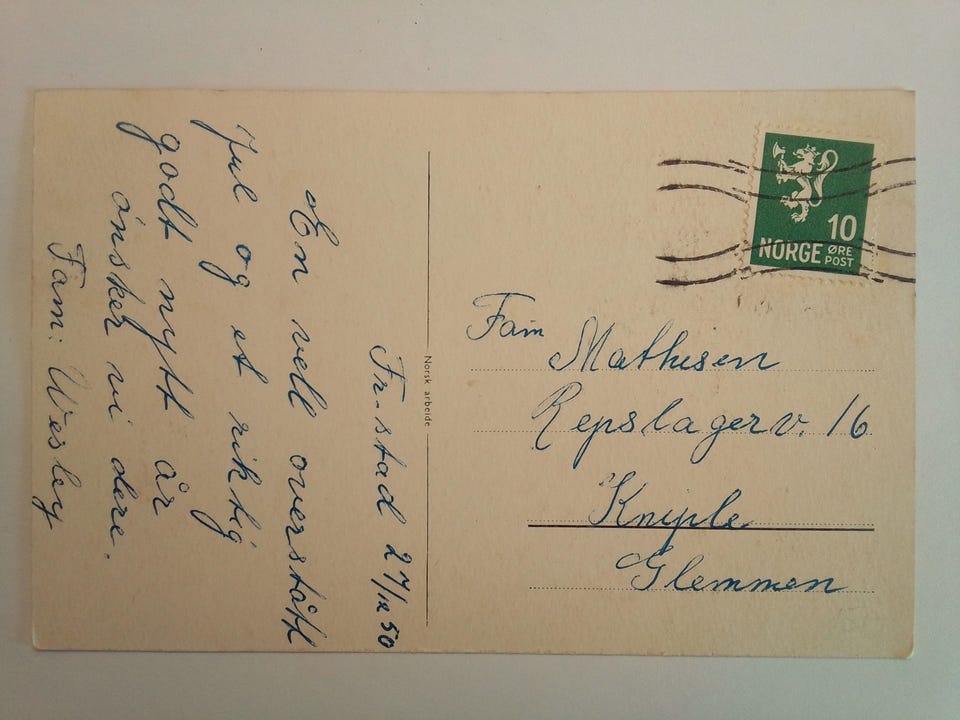 Fr.stad 27/12 50
En vell overstått
Jul og et riktig
godt nytt år
ønsker vi dere.
Fam: Wesley
Norsk arbeide
10
NORGE ØRE POST
Fam
Mathisen
Repslagerv. 16
Kniple
Glemmen